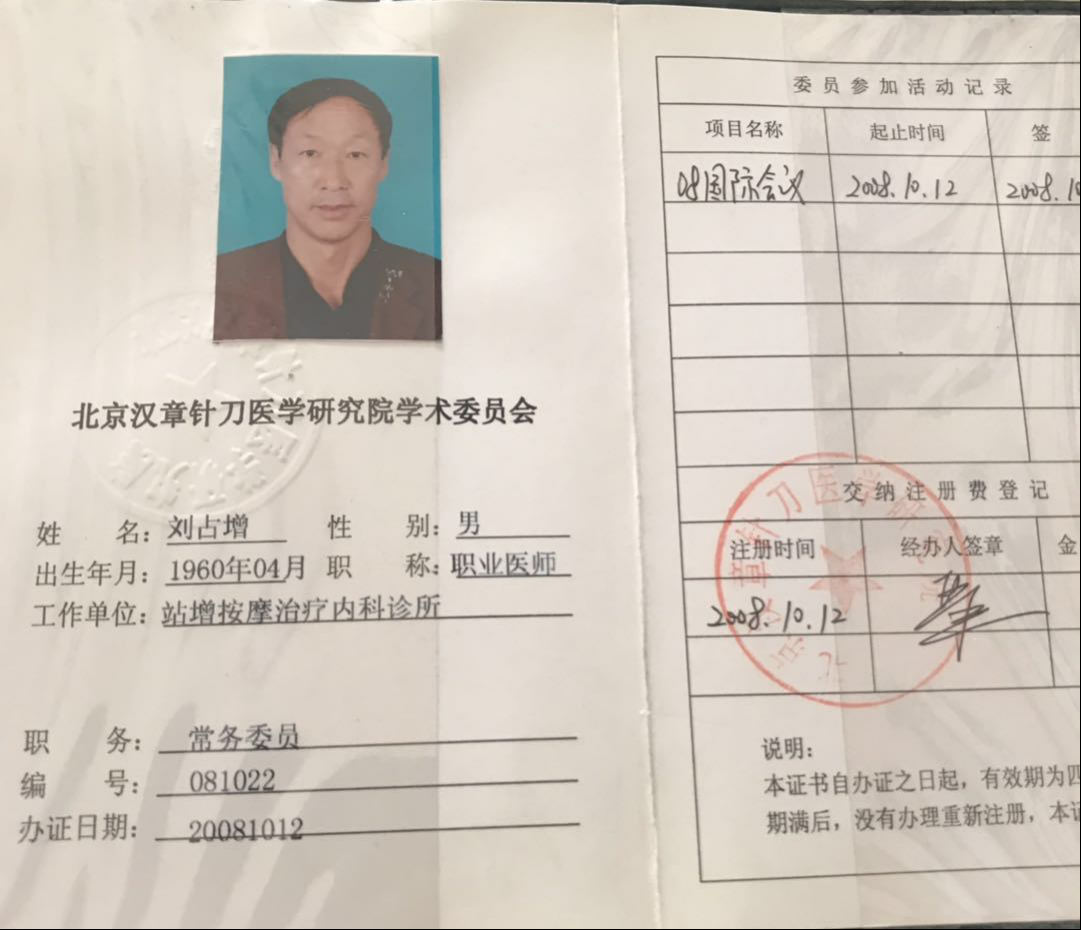 北京汉章针刀医学研究院学术委员会
姓 名：刘占增 性 别：男
出生年月：1960年04月 职 称：职业医师
工作单位：站增按摩治疗内科诊所
职 务：常务委员
编 号：081022
办证日期：20081012
委员参加活动记录
项目名称 起止时间 签
08国际会议 2008.10.12 2008.10
交纳注册费登记
注册时间 经办人签章 金
2008.10.12
说明：
本证书自办证之日起，有效期为四
期满后，没有办理重新注册，本证